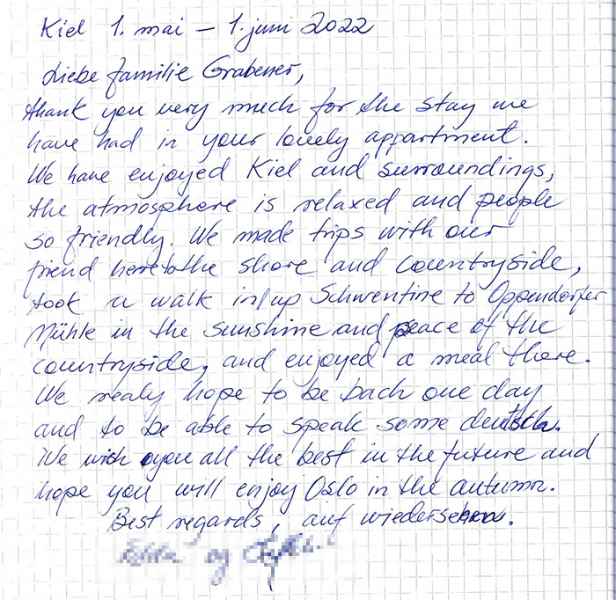 Kiel 1. mai - 1. juni 2022
Liebe familie Grabener,
thank you very much for the stay we
have had in your lovely appartment.
We have enjoyed Kiel and surroundings,
the atmosphere is relaxed and people
so friendly. We made trips with our
friend here to the shore and countryside,
took a walk up Schwentine to Oppendorfer
Mühle in the sunshine and peace of the
countryside, and enjoyed a meal there.
We realy hope to be back one day
and to be able to speak some deutsch.
We wish you all the best in the future and
hope you will enjoy Oslo in the autumn.
Best regards, auf wiedersehen.
og